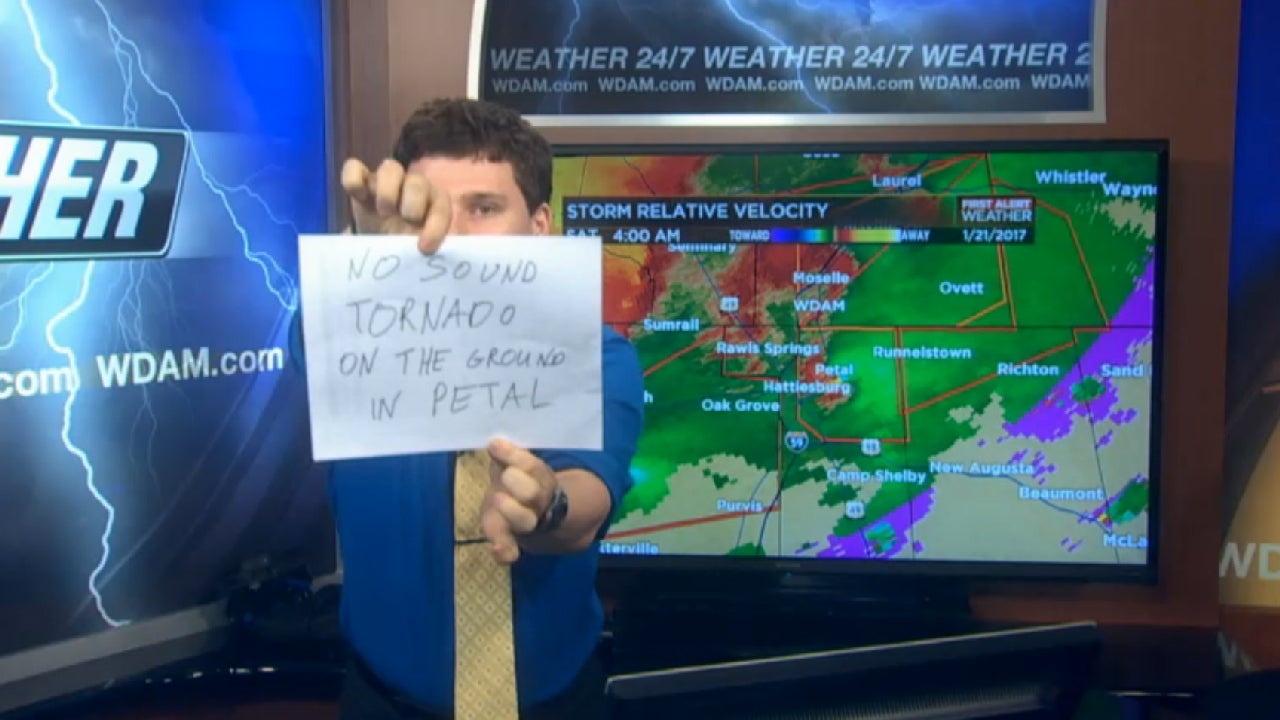 WEATHER 24/7 WEATHER 24/7 WEATHER 2
WDAM.com WDAM.com WDAM.com WDAM.com WDAM.com WDAM
HER
.com WDAM.com
NO SOUND
TORNADO
ON THE GROUND
IN PETAL
STORM RELATIVE VELOCITY
FIRST ALERT
WEATHER
SAT 4:00 AM TOWARD AWAY 1/21/2017
Laurel
Whistler
Wayn
Seminary
Moselle
Ovett
49
WDAM
Sumrall
Rawls Springs
Runnelstown
Petal
Richton
Sand
Hattiesburg
h
Oak Grove
59
98
Camp Shelby
New Augusta
Beaumont
Purvis
49
McLa
terville
WD